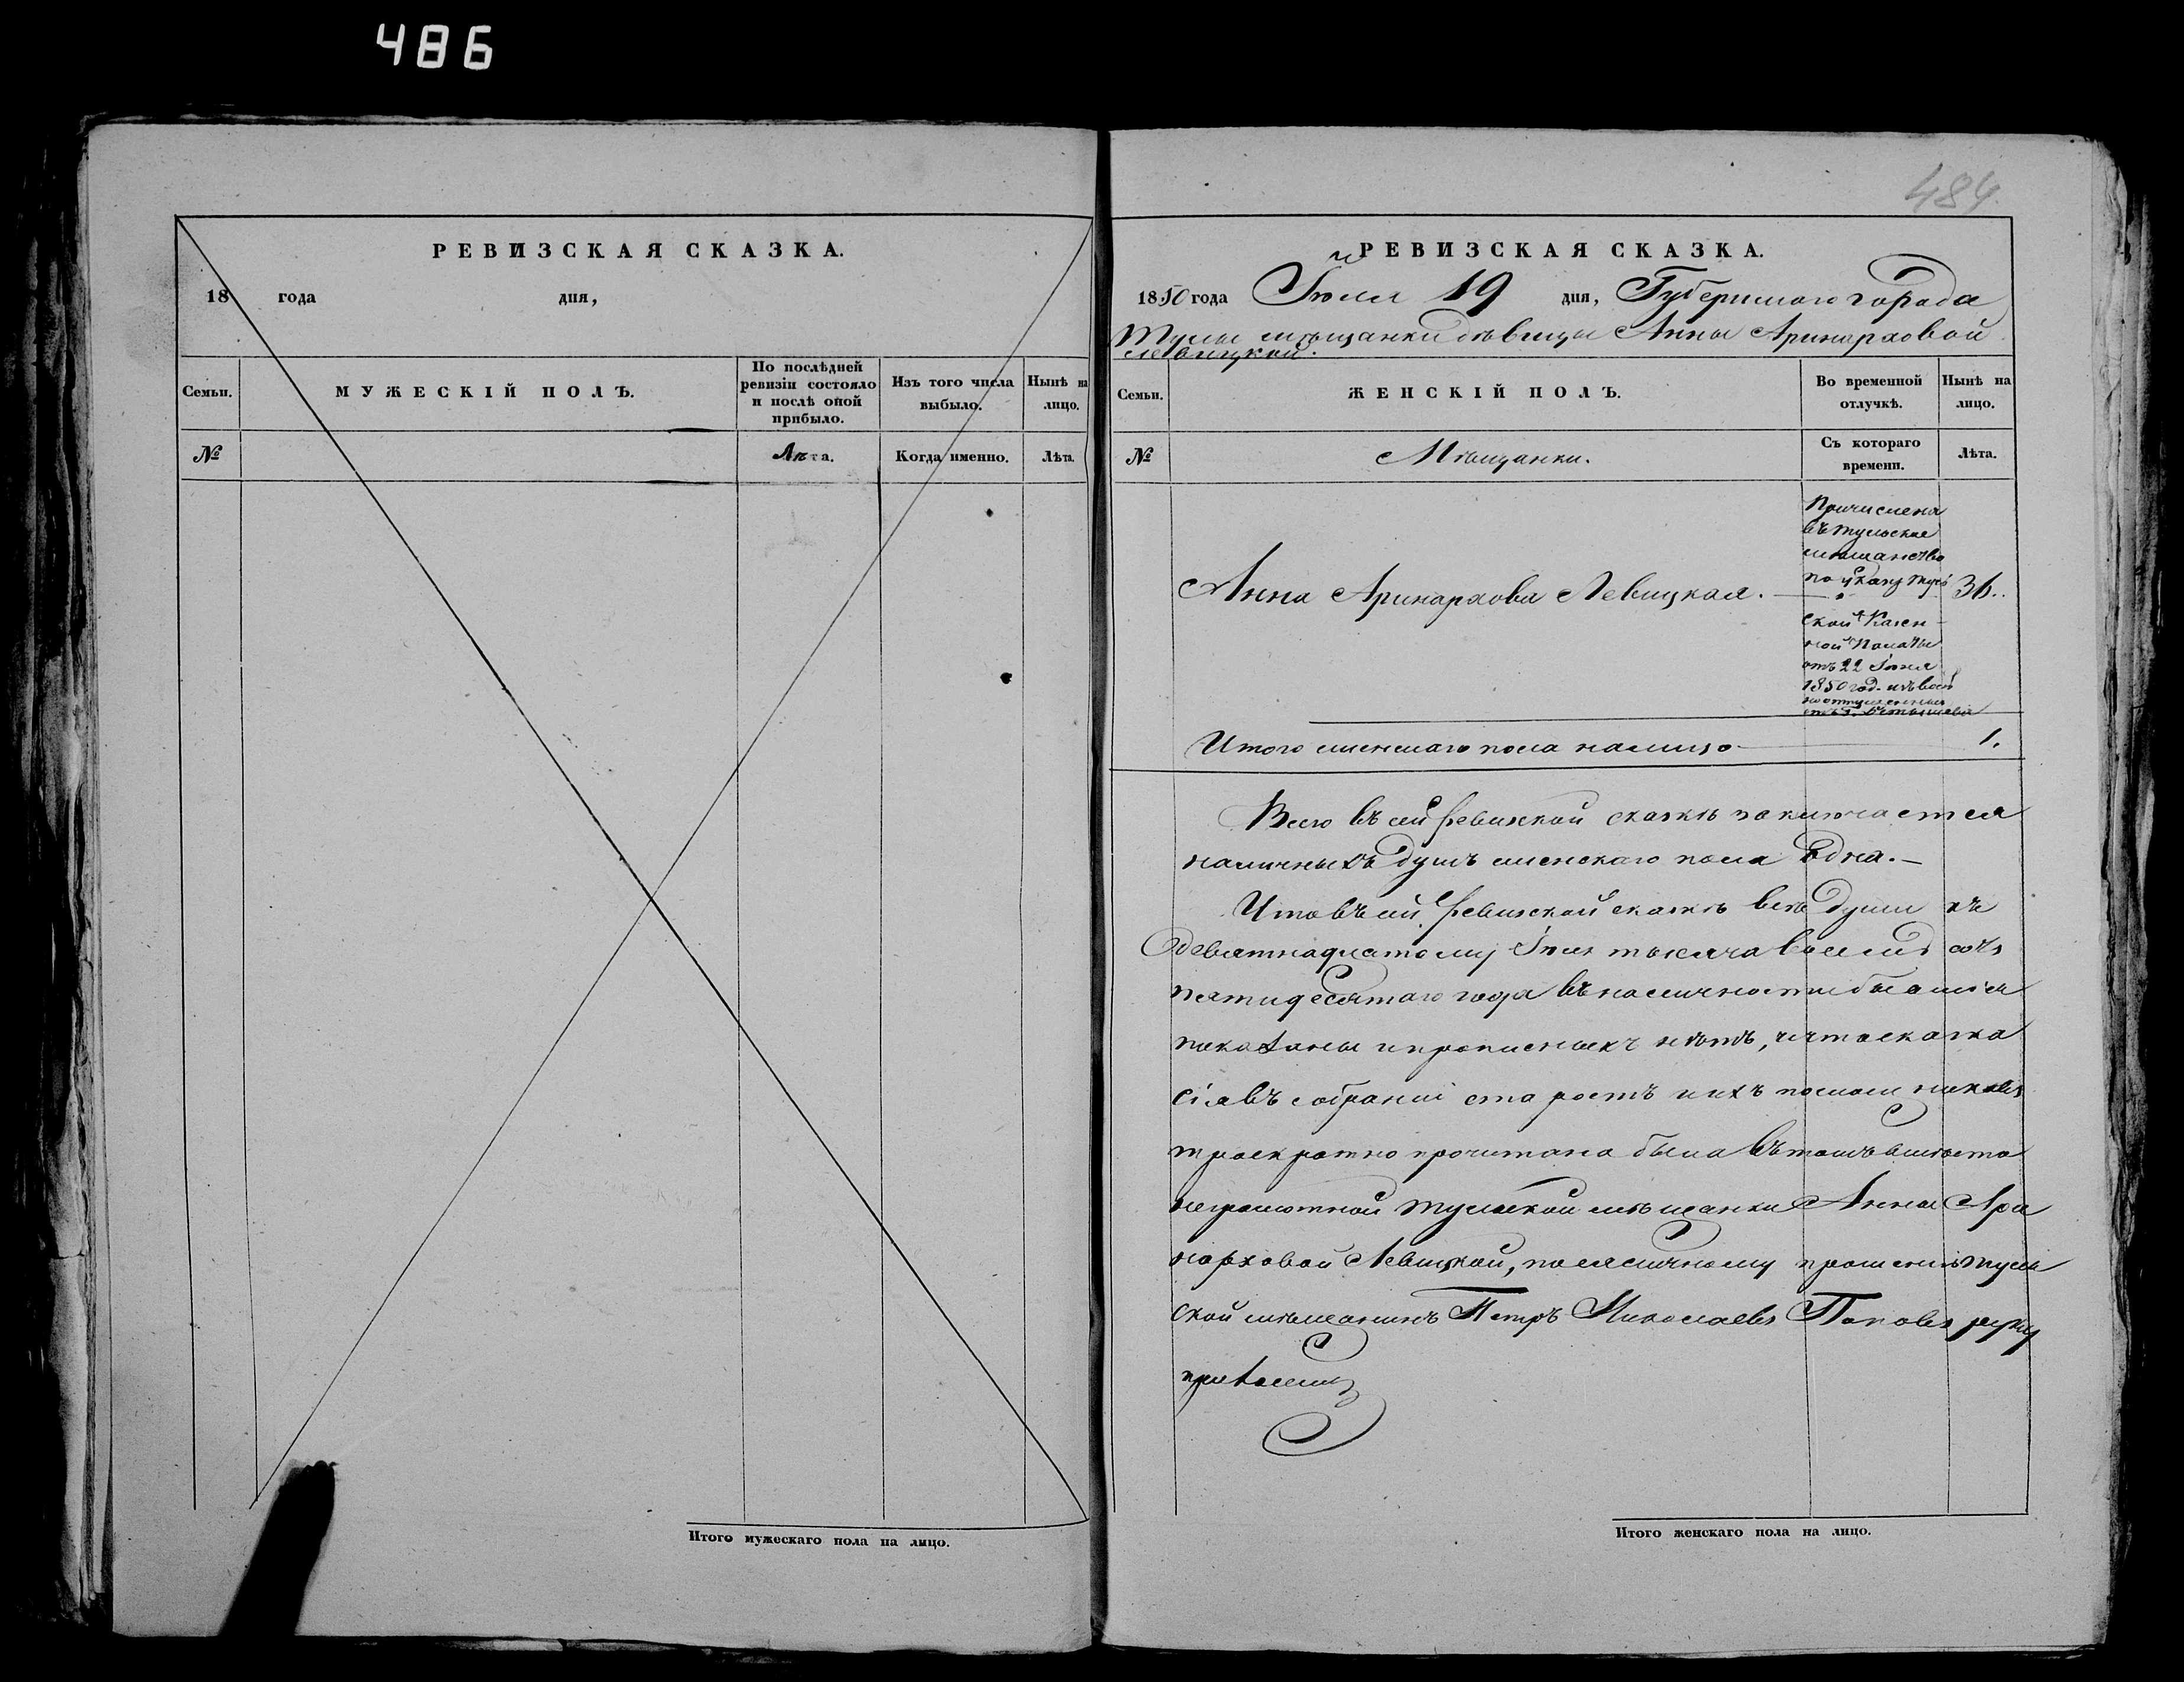 486
РЕВИЗСКАЯ СКАЗКА.
18 года дня,
Семьи. МУЖЕСКІЙ ПОЛЪ. По послѣдней ревизіи состояло и послѣ оной прибыло. Изъ того числа выбыло. Нынѣ на лицо.
№ Лѣта. Когда именно. Лѣта.
Итого мужескаго пола на лицо.
484
РЕВИЗСКАЯ СКАЗКА.
1850 года Іюля 19 дня, Губернскаго города
Тулы мѣщанки дѣвицы Анны Аринарховой
Левицкой.
Семьи. ЖЕНСКІЙ ПОЛЪ. Во временной отлучкѣ. Нынѣ на лицо.
№ Мѣщанки. Съ котораго времени. Лѣта.
Анна Аринархова Левицкая. 36.
Причислена
въ тульское
мѣщанство
по указу Туль
ской Казен
ной Палаты
отъ 22 Іюня
1850 год. изъ воль
ноотпущенныхъ
отъ Г.
Итого женскаго пола налицо 1.
Всего въ сей ревизской сказкѣ заключается
наличныхъ душъ женскаго пола одна.
Что въ сей ревизской сказкѣ всѣ души къ
девятнадцатому Іюля тысяча восемь сотъ
пятидесятаго года въ наличности бывшія
показаны и прописныхъ нѣтъ, и что сказка
сія въ собраніи старостъ и ихъ помощниковъ
троекратно прочитана была въ томъ вмѣсто
неграмотной Тульской мѣщанки Анны Ари
нарховой Левицкой, по ея личному прошенію Туль
ской мѣщанинъ Петръ Николаевъ Поповъ руку
приложилъ
Итого женскаго пола на лицо.